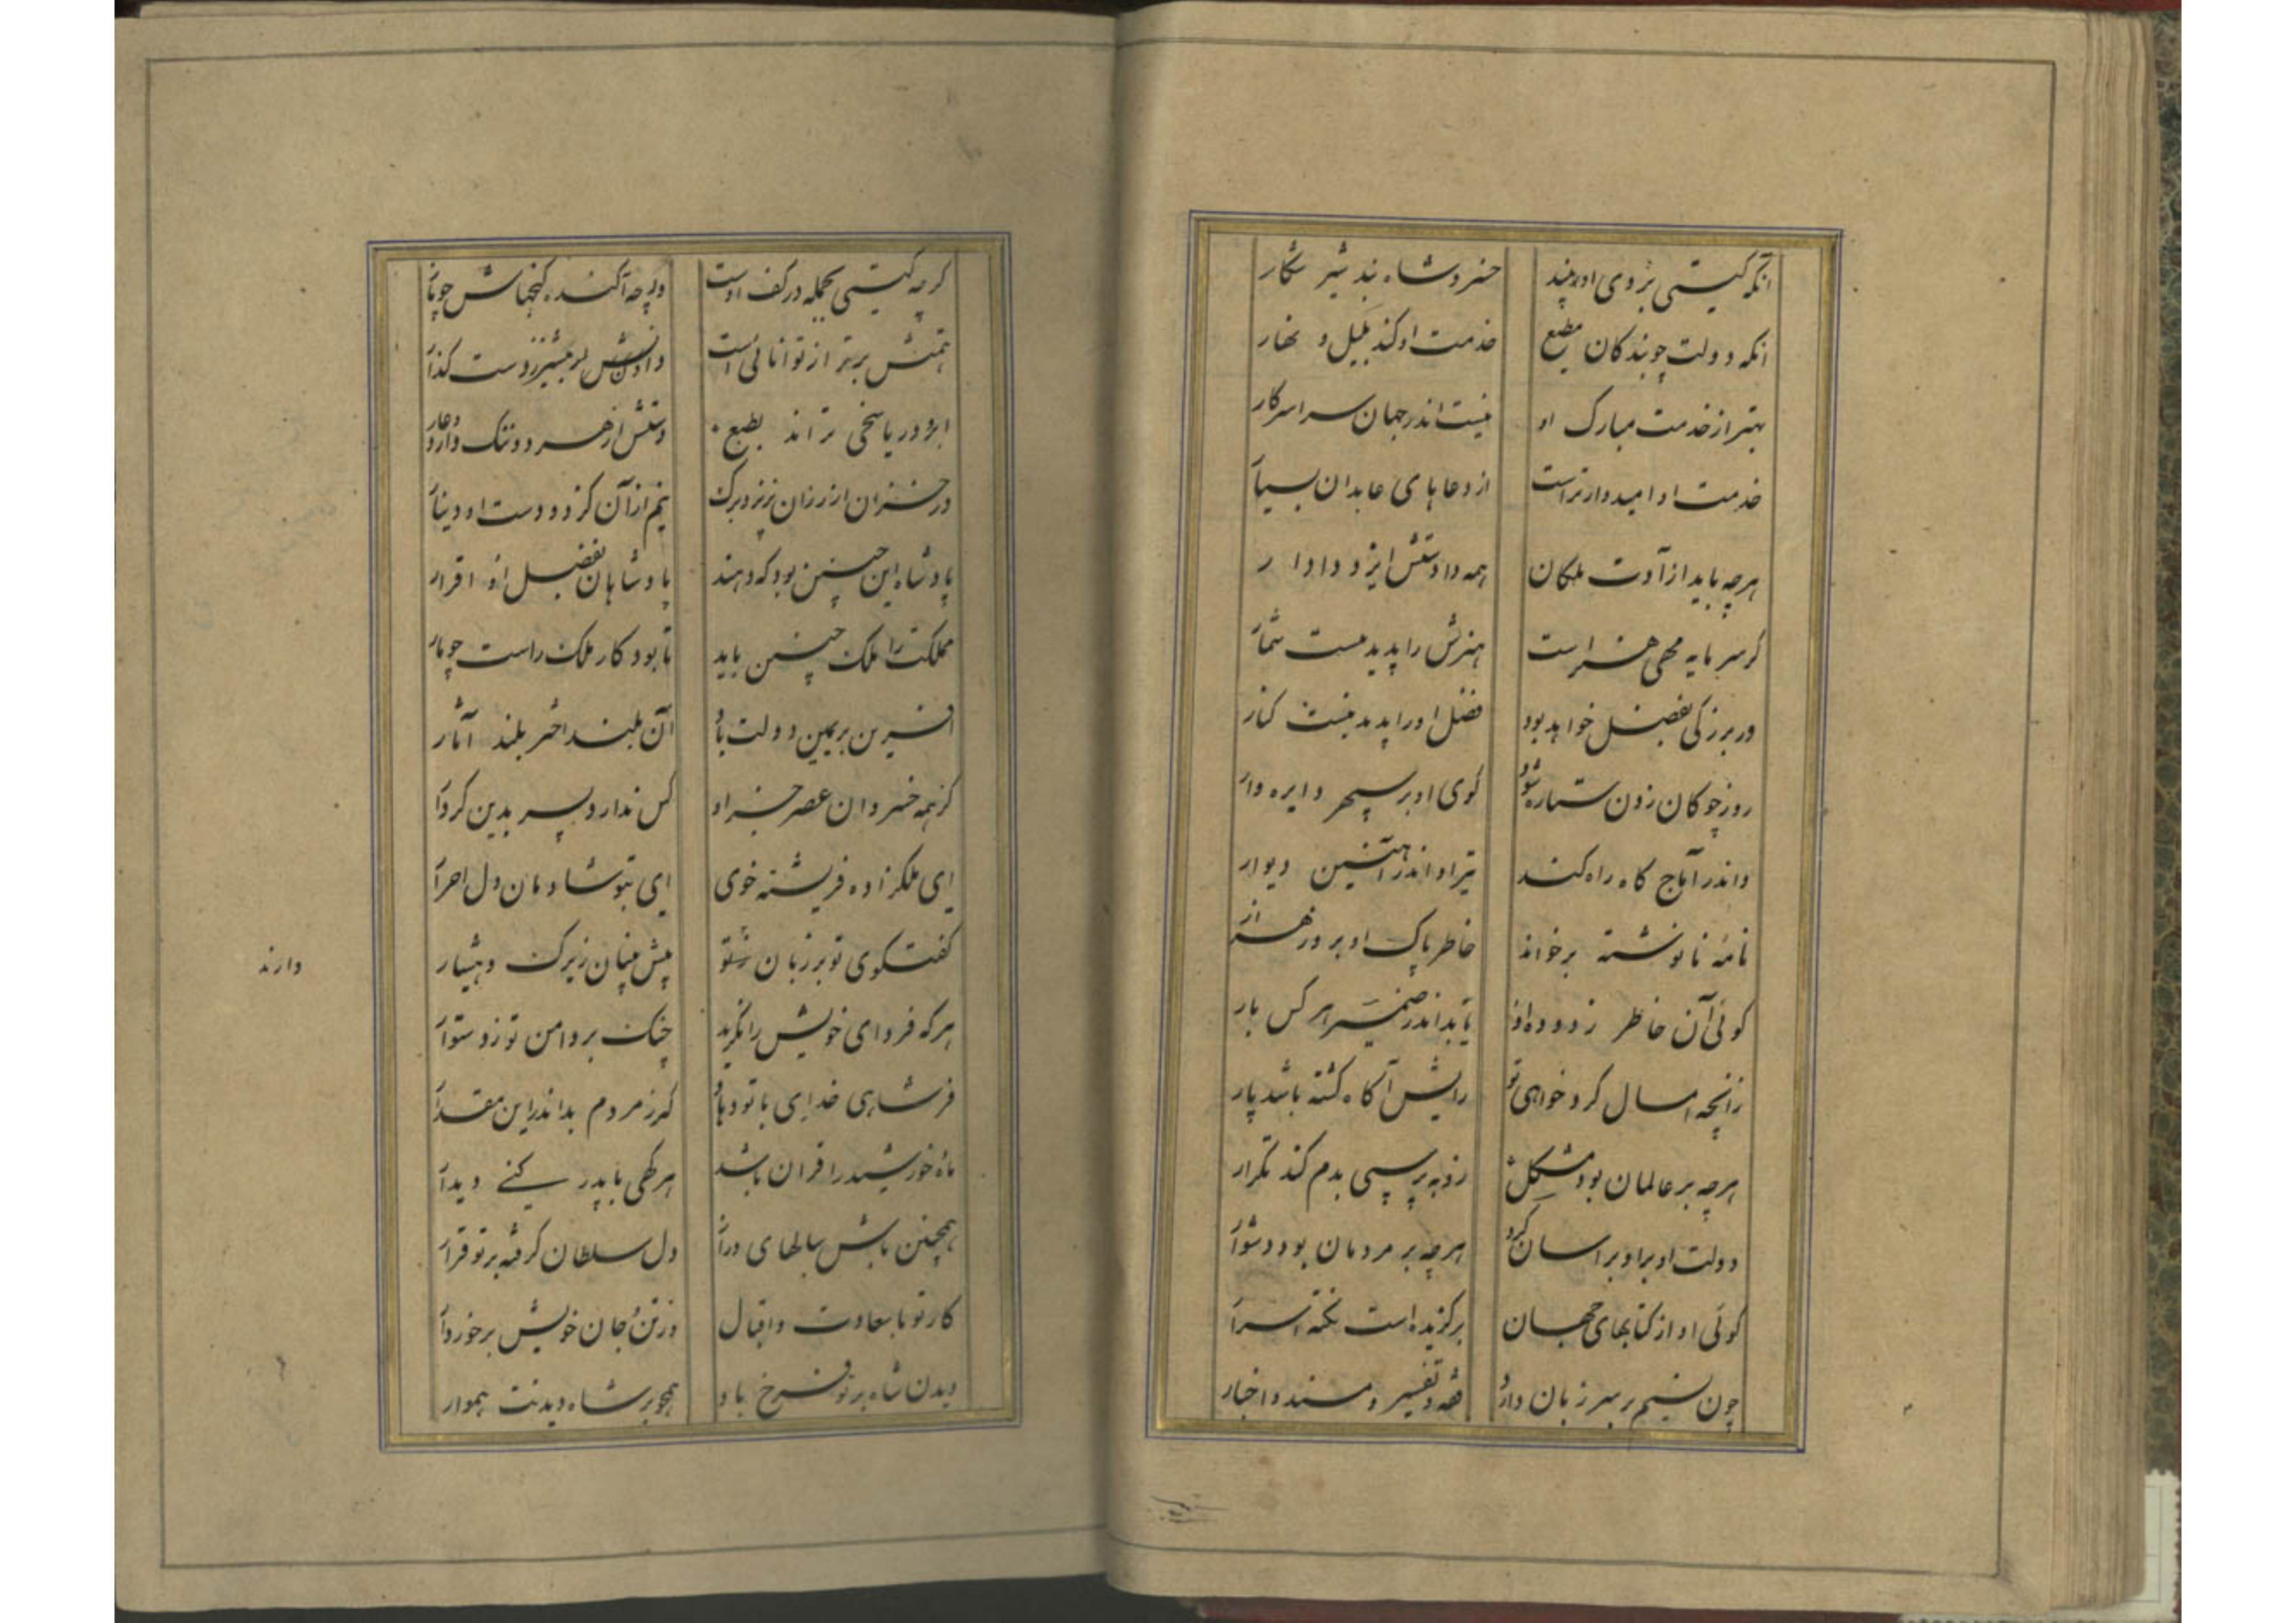 آنکه گیتی بروی او بیند خسرو شاه بند شیر شکار
آنکه دولت چو بندکان مطیع خدمت او کند بلیل و نهار
بهتر از خدمت مبارک او نیست اندر جهان سراسر کار
خدمت او امیدوارتر است از دعاهای عابدان بسیار
هرچه باید از آلت ملکان همه دادستش ایزد دادار
گر سرمایه مهی هنر است هنرش را پدید نیست شمار
ور بزرگی بفضل خواهد بود فضل او را پدید نیست کنار
روز چوکان زدن ستاره شود کوی او بر سپهر دایره وار
واندر آماج کاه راه کند تیر او اندر آهنین دیوار
نامه نانوشته برخواند خاطر پاک او بروز هزار
کوئی آن خاطر زدوده او یابد اندر ضمیر هر کس بار
زانچه امسال کرد خواهی تو رایش آکاه کشته باشد پار
هرچه بر عالمان بود مشکل زو بپرسی بدم کند تکرار
دولت او بر او بر اسان کرد هرچه بر مردمان بود دشوار
کوئی او از کتابهای جهان برکزیده است نکته اسرار
چون نسیم بر سر زبان دارد فقه و تفسیر و مسند و اخبار
کرچه کیتی بجمله در کف اوست ورچه آکنده کنجهاش چو نار
همتش برتر از توانائی است دادنش بیشتر ز دست کذار
ابر و دریا سخی تراند بطبع دستش از هر دو ننک دارد و عار
در خزان از رزان نریزد برک نیم از آن کز دو دست او دینار
پادشاه این چنین بود که دهند پادشاهان بفضل او اقرار
مملکت را ملک چنین باید تا بود کار ملک راست چو تار
افرین بر یمین دولت باد آن بلند اختر بلند آثار
کز همه خسروان عصر جز او کس ندارد پسر بدین کردار
ای ملکزاده فرشته خوی ای بتو شادمان دل احرار
کفتکوی تو بر زبان شتو پیش بینان زیرک و هشیار
هر که فردای خویش را نکرید چنک بر دامن تو زد ستوار
فر شاهی خدای با تو دهاد که ز مردم بداند این مقدار
ماه خورشید را قران باشد هر کهی با پدر کنی دیدار
همچنین باش سالهای دراز دل سلطان کرفته بر تو قرار
کار تو با سعادت و اقبال وز تن و جان خویش برخوردار
دیدن شاه بر تو فرخ باد همچو بر شاه دیدنت هموار
دارند